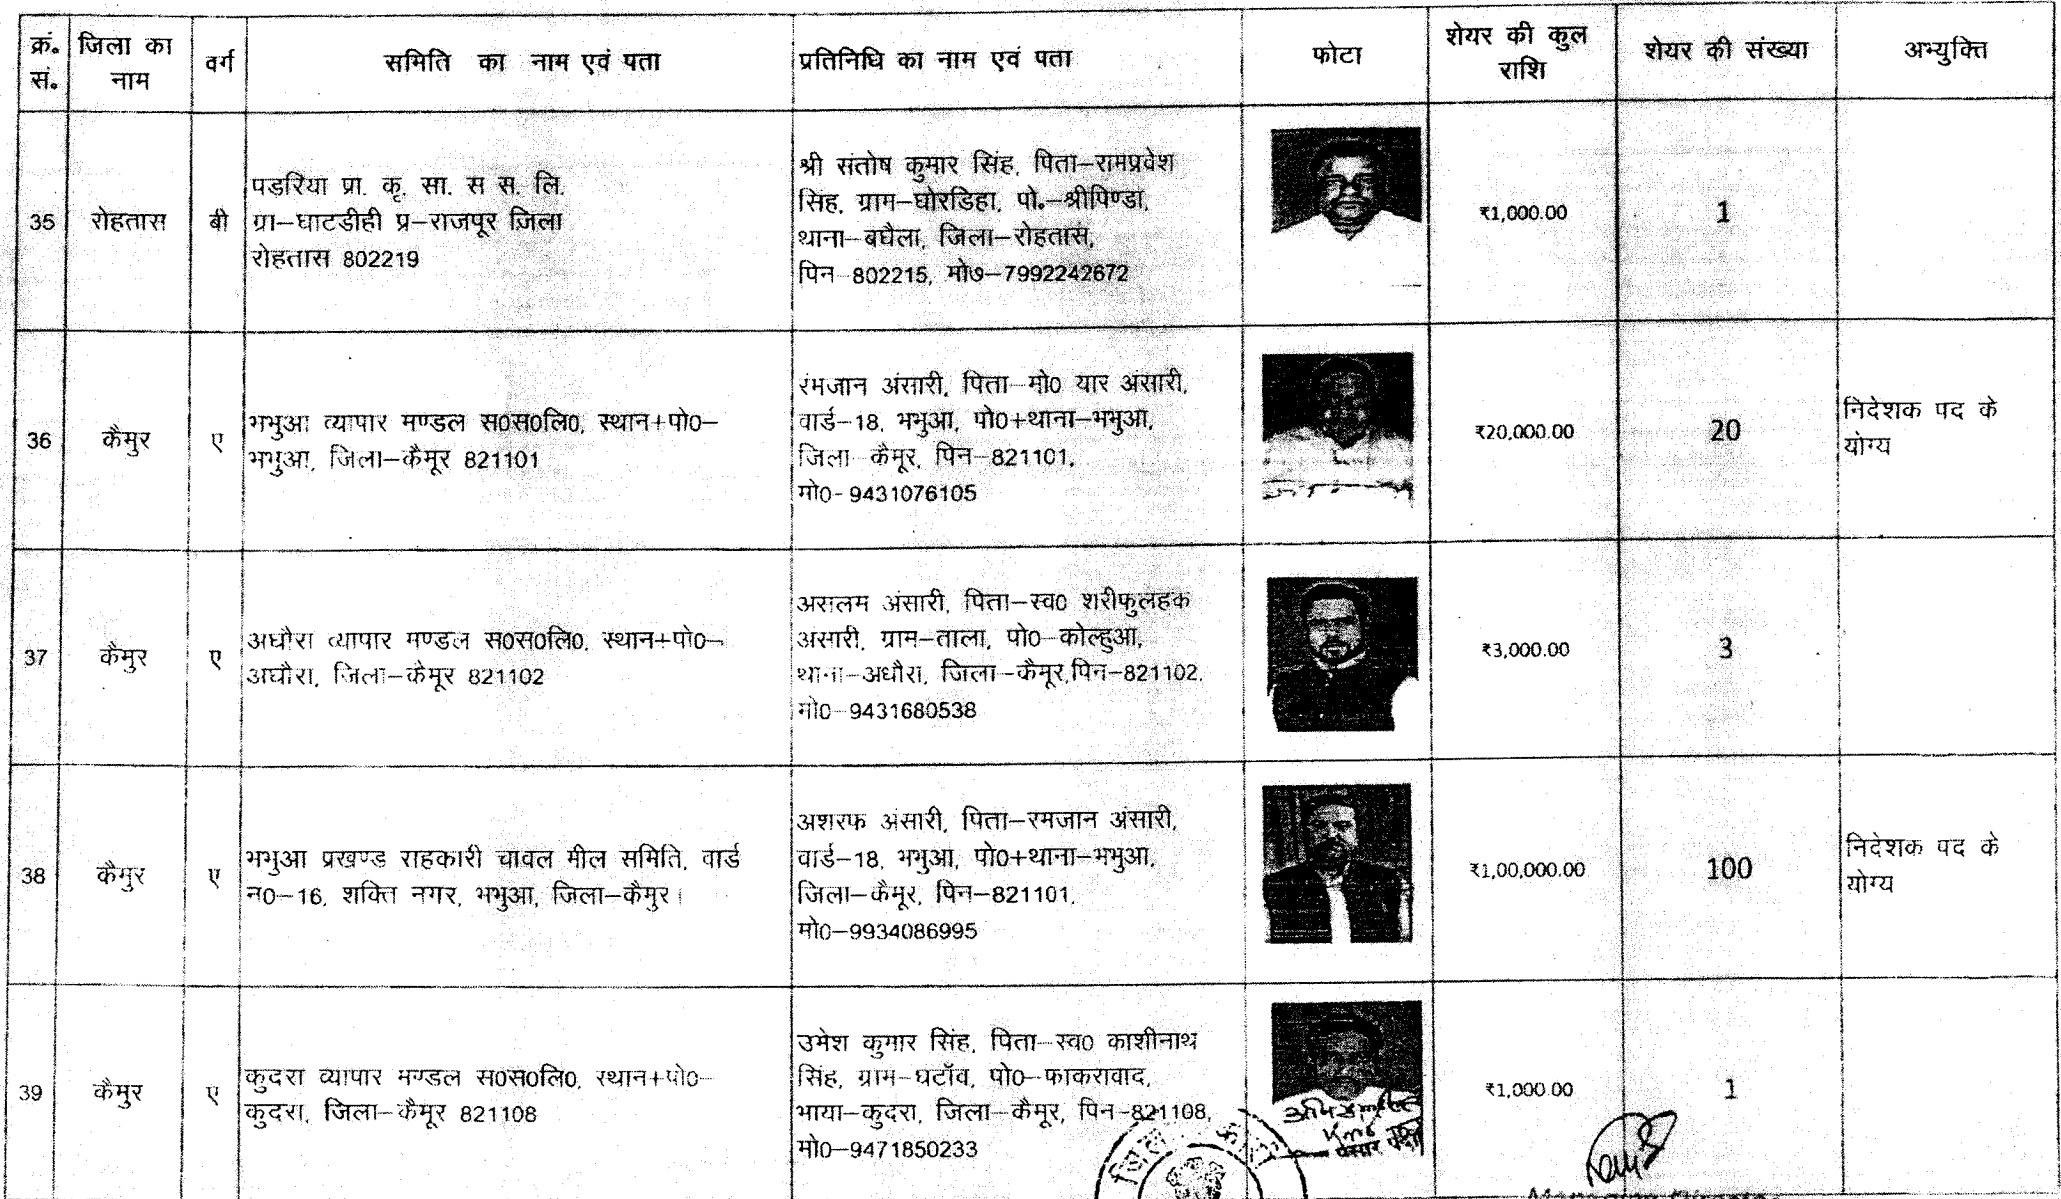 क्रं. जिला का वर्ग समिति का नाम एवं पता प्रतिनिधि का नाम एवं पता फोटा शेयर की कुल शेयर की संख्या अभ्युक्ति
सं. नाम राशि
35 रोहतास बी
पड़रिया प्रा. कृ. सा. स स. लि.
ग्रा–घाटडीही प्र–राजपूर ज़िला
रोहतास 802219
श्री संतोष कुमार सिंह, पिता–रामप्रवेश
सिंह, ग्राम–घोरडिहा, पो.–श्रीपिण्डा,
थाना–बघैला, जिला–रोहतास,
पिन–802215, मो७–7992242672
₹1,000.00 1
36 कैमुर ए
भभुआ व्यापार मण्डल स0स0लि0, स्थान+पो0–
भभुआ, जिला–कैमूर 821101
रमजान अंसारी, पिता–मो0 यार अंसारी,
वार्ड–18, भभुआ, पो0+थाना–भभुआ,
जिला–कैमूर, पिन–821101,
मो0-9431076105
₹20,000.00 20
निदेशक पद के
योग्य
37 कैमुर ए
अधौरा व्यापार मण्डल स0स0लि0, स्थान+पो0–
अधौरा, जिला–कैमूर 821102
असलम अंसारी, पिता–स्व0 शरीफुलहक
अंसारी, ग्राम–ताला, पो0–कोल्हुआ,
थाना–अधौरा, जिला–कैमूर,पिन–821102,
मो0–9431680538
₹3,000.00 3
38 कैमुर ए
भभुआ प्रखण्ड सहकारी चावल मील समिति, वार्ड
न0–16, शक्ति नगर, भभुआ, जिला–कैमुर।
अशरफ अंसारी, पिता–रमजान अंसारी,
वार्ड–18, भभुआ, पो0+थाना–भभुआ,
जिला–कैमूर, पिन–821101,
मो0–9934086995
₹1,00,000.00 100
निदेशक पद के
योग्य
39 कैमुर ए
कुदरा व्यापार मण्डल स0स0लि0, स्थान+पो0–
कुदरा, जिला–कैमूर 821108
उमेश कुमार सिंह, पिता–स्व0 काशीनाथ
सिंह, ग्राम–घटाँव, पो0–फाकरावाद,
भाया–कुदरा, जिला–कैमूर, पिन–821108,
मो0–9471850233
₹1,000.00 1